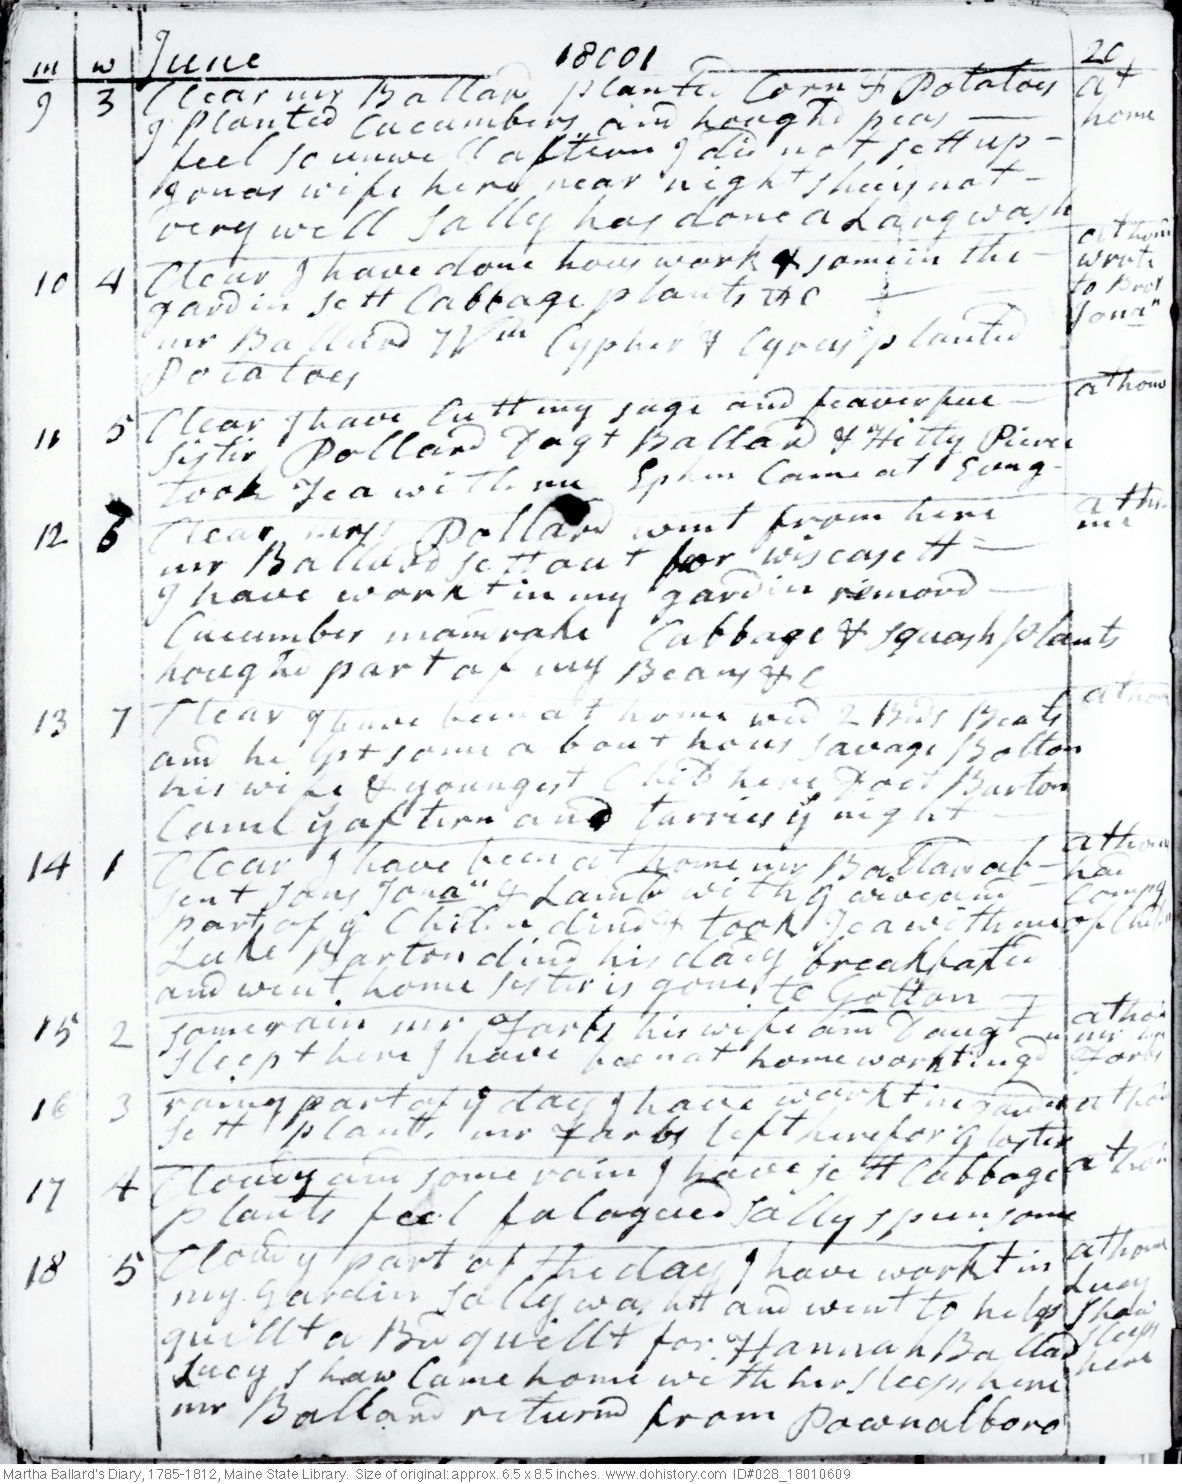 m w June 18001 20
9 3 Clear mr Ballard planted Corn & Potatoes at
I planted Cucumbers and hought peas home
feel so unwell aftern I did not sett up
Jonas wife here near night shee is not
very well Sally has done a Larg wash
10 4 Clear I have done hous work & some in the at home
gardin sett Cabbage plants &C wrote
mr Ballard Wm Cypher & Cyrus planted to Bror
Potatoes Jona"
11 5 Clear I have Cutt my sage and feaverfue at home
Sister Pollard Dagt Ballard & Hitty Pierce
took Tea with me Ephm Came at Evng
12 6 Clear mrs Pollard went from here at home
mr Ballard sett out for wiscasett
I have workt in my gardin removd
Cucumber mandrake Cabbage & squash plants
hought part of my Beans &C
13 7 Clear I have been at home wed 2 Beds Beats at home
and helpt some about hous Savage Bolton
his wife & youngest Child here Doct Barton
Came y aftern and tarries y night
14 1 Clear I have been at home mr Ballard ab at home
sent sons Jona" & Lamb with y wives and had
part of y Children dind & took Tea with me Compy
Luke Barton dind his dady breakfasted of Children
and went home Sister is gone to
15 2 some rain mr Forbs his wife and Daugt at home
sleept here I have been at home workting mr Forbs
16 3 rainy part of y day I have workt in gardin at home
sett plants mr Farbs left here for Gloster
17 4 Cloudy and some rain I have sett Cabbage at home
plants feel fatagued Sally spun some
18 5 Cloudy part of the day I have workt in at home
my gardin Sally washt and went to help Lucy
quillt a Bed quillt for Hannah Ballard Shaw
Lucy Shaw Came home with her sleeps here sleeps
mr Ballard returnd from Pownalboro here
Martha Ballard's Diary, 1785-1812, Maine State Library. Size of original: approx. 6.5 x 8.5 inches. www.dohistory.com ID#028_18010609